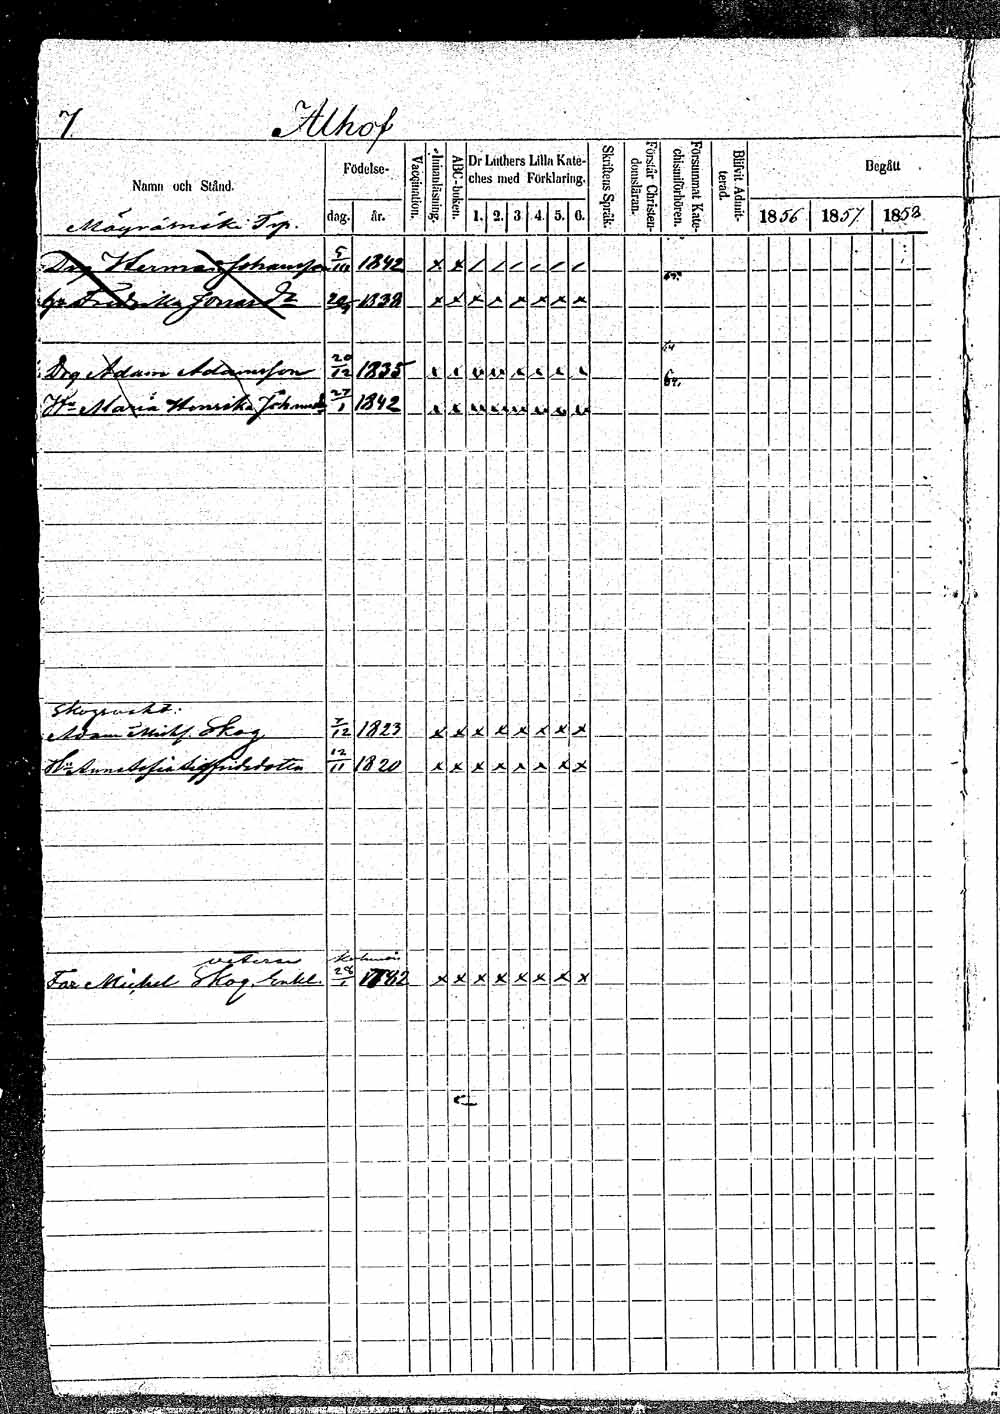 7. Alhof
Namn och Stånd. Födelse- dag. år. Vaccination. Innanläsning. ABC-boken. Dr Luthers Lilla Kateches med Förklaring. 1. 2. 3 4. 5. 6. Skriftens Språk. Förstår Christendomsläran. Försummat Katechismiförhören. Blifvit Admitterad. Begått 1856 1857 1858
Torp.
Drg Herman Johansson 5/10 1842 x x / / / / / /
Fredrika 1838 x x x x x x x x
Drg Adam Adamsson 20/12 1835
Hu Maria Henrika 27/1 1842
Adam Skog 7/12 1823 x x x x x x x x
Hu Anna Sofia Sigfridsdotter 12/11 1820 x x x x x x x x
Far Michel Skog Enkl. 28/1 1782 x x x x x x x x